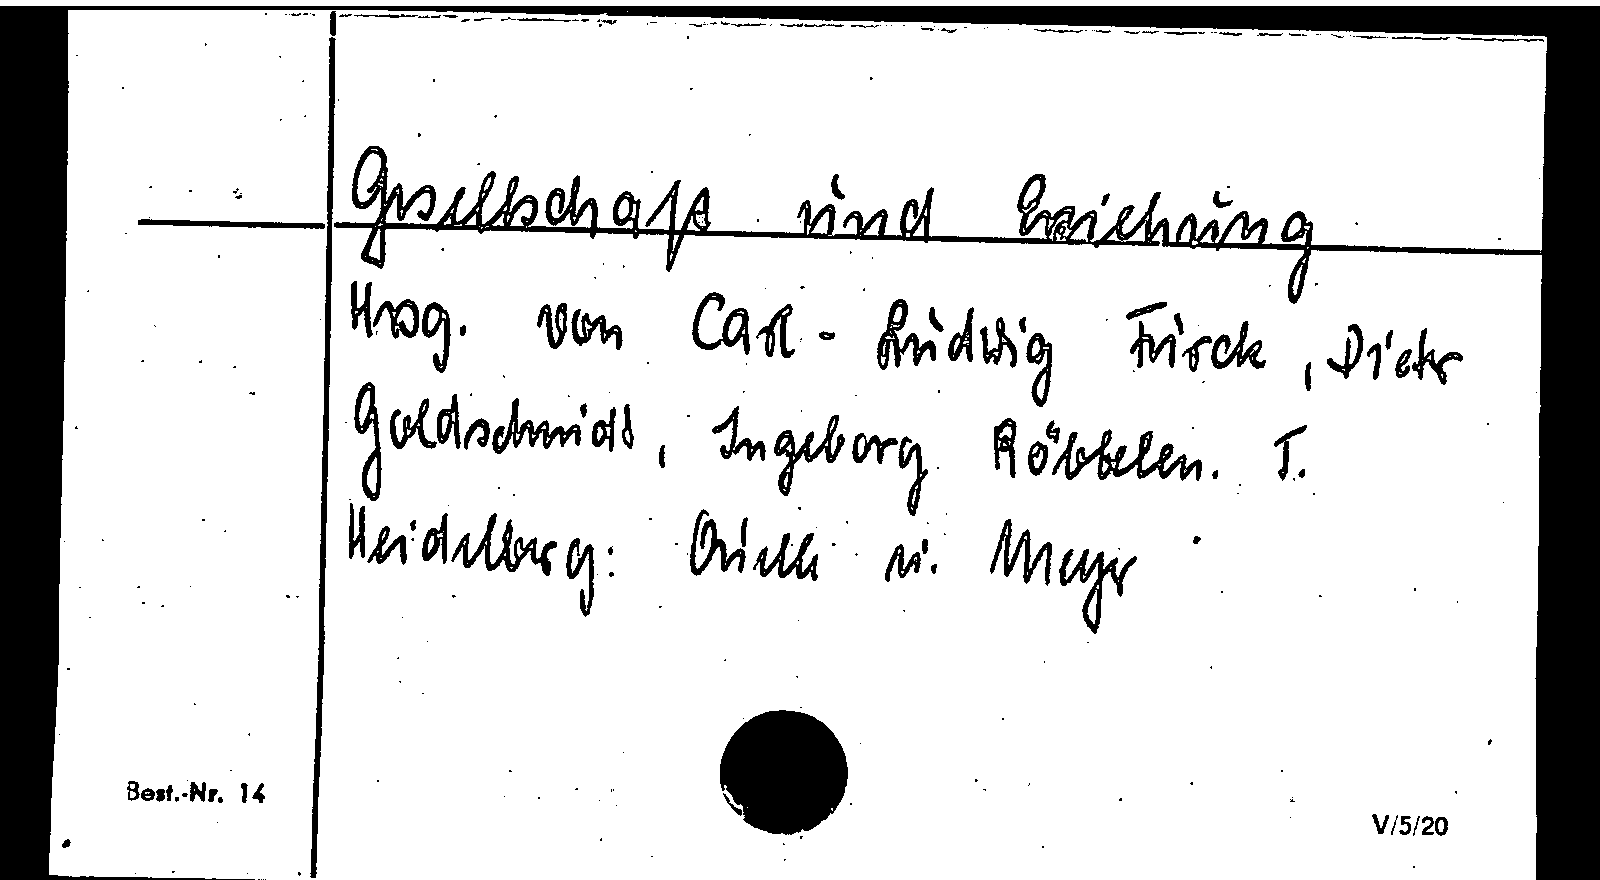 Gesellschaft und Erziehung
Hrsg. von Carl-Ludwig Furck, Dieter
Goldschmidt, Ingeborg Röbbelen. T.
Heidelberg: Quelle u. Meyer
Best.-Nr. 14
V/5/20